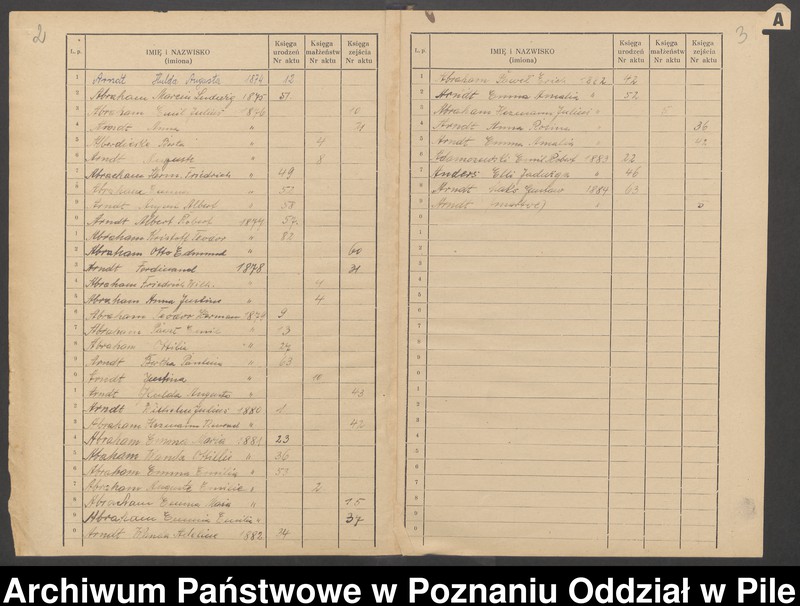 2
L. p. IMIĘ i NAZWISKO (imiona) Księga urodzeń Nr aktu Księga małżeństw Nr aktu Księga zejścia Nr aktu
1 Arndt Hulda Augusta 1874 12
2 Abraham Marcin Ludwig 1875 51
3 Abraham Emil Julius 1876 10
4 Arndt Anna " 71
5 " 4
6 Arndt Auguste " 8
7 Abraham Herm. Friedrich " 49
8 Abraham Emma " 52
9 Arndt August Albert " 58
0 Arndt Albert Robert 1877 57
1 Abraham Kristoff Teodor " 82
2 Abraham Otto Edmund " 60
3 Arndt Ferdinand 1878 21
4 Abraham Friedrich Wilh. " 4
5 Abraham Anna Justine " 4
6 Abraham Teodor Herman 1879 9
7 Abraham Paul Emil " 13
8 Abraham Ottilie " 27
9 Arndt Bertha Paulina " 63
0 Arndt Justina " 10
1 Arndt Hulda Augusta " 43
2 Arndt Wilhelm Julius 1880 1
3 Abraham Hermann Konrad " 42
4 Abraham Emma Maria 1881 23
5 Abraham Wanda Ottilie " 36
6 Abraham Emma Emilie " 53
7 Abraham Auguste Emilie " 2
8 Abraham Emma Maria " 15
9 Abraham Emma Emilie " 37
0 Arndt Adeline 1882 34
3
A
L. p. IMIĘ i NAZWISKO (imiona) Księga urodzeń Nr aktu Księga małżeństw Nr aktu Księga zejścia Nr aktu
1 Abraham Pawel Erich 1882 42
2 Arndt Emma Amalia " 52
3 Abraham Hermann Julius "
4 Arndt Anna Rosina " 36
5 Arndt Emma Amalia " 42
6 Adamczewski Emil Robert 1883 22
7 Anders Elli Jadwiga " 46
8 Arndt Gustaw 1884 63
9 Arndt (martwe) "
0
1
2
3
4
5
6
7
8
9
0
1
2
3
4
5
6
7
8
9
0
Archiwum Państwowe w Poznaniu Oddział w Pile